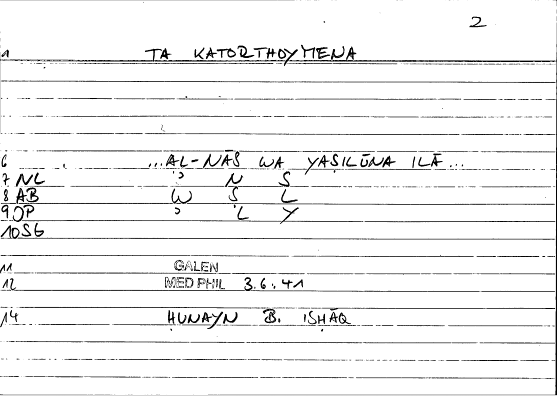 2
1 TA KATORTHOYMENA
6 ...AL-NĀS WA YAṢILŪNA ILĀ...
7 NL ʾ N S
8 AB W Ṣ L
9 OP ʾ L Y
10 SG
11 GALEN
12 MED PHIL 3.6.41
14 ḤUNAYN B. ISḤĀQ